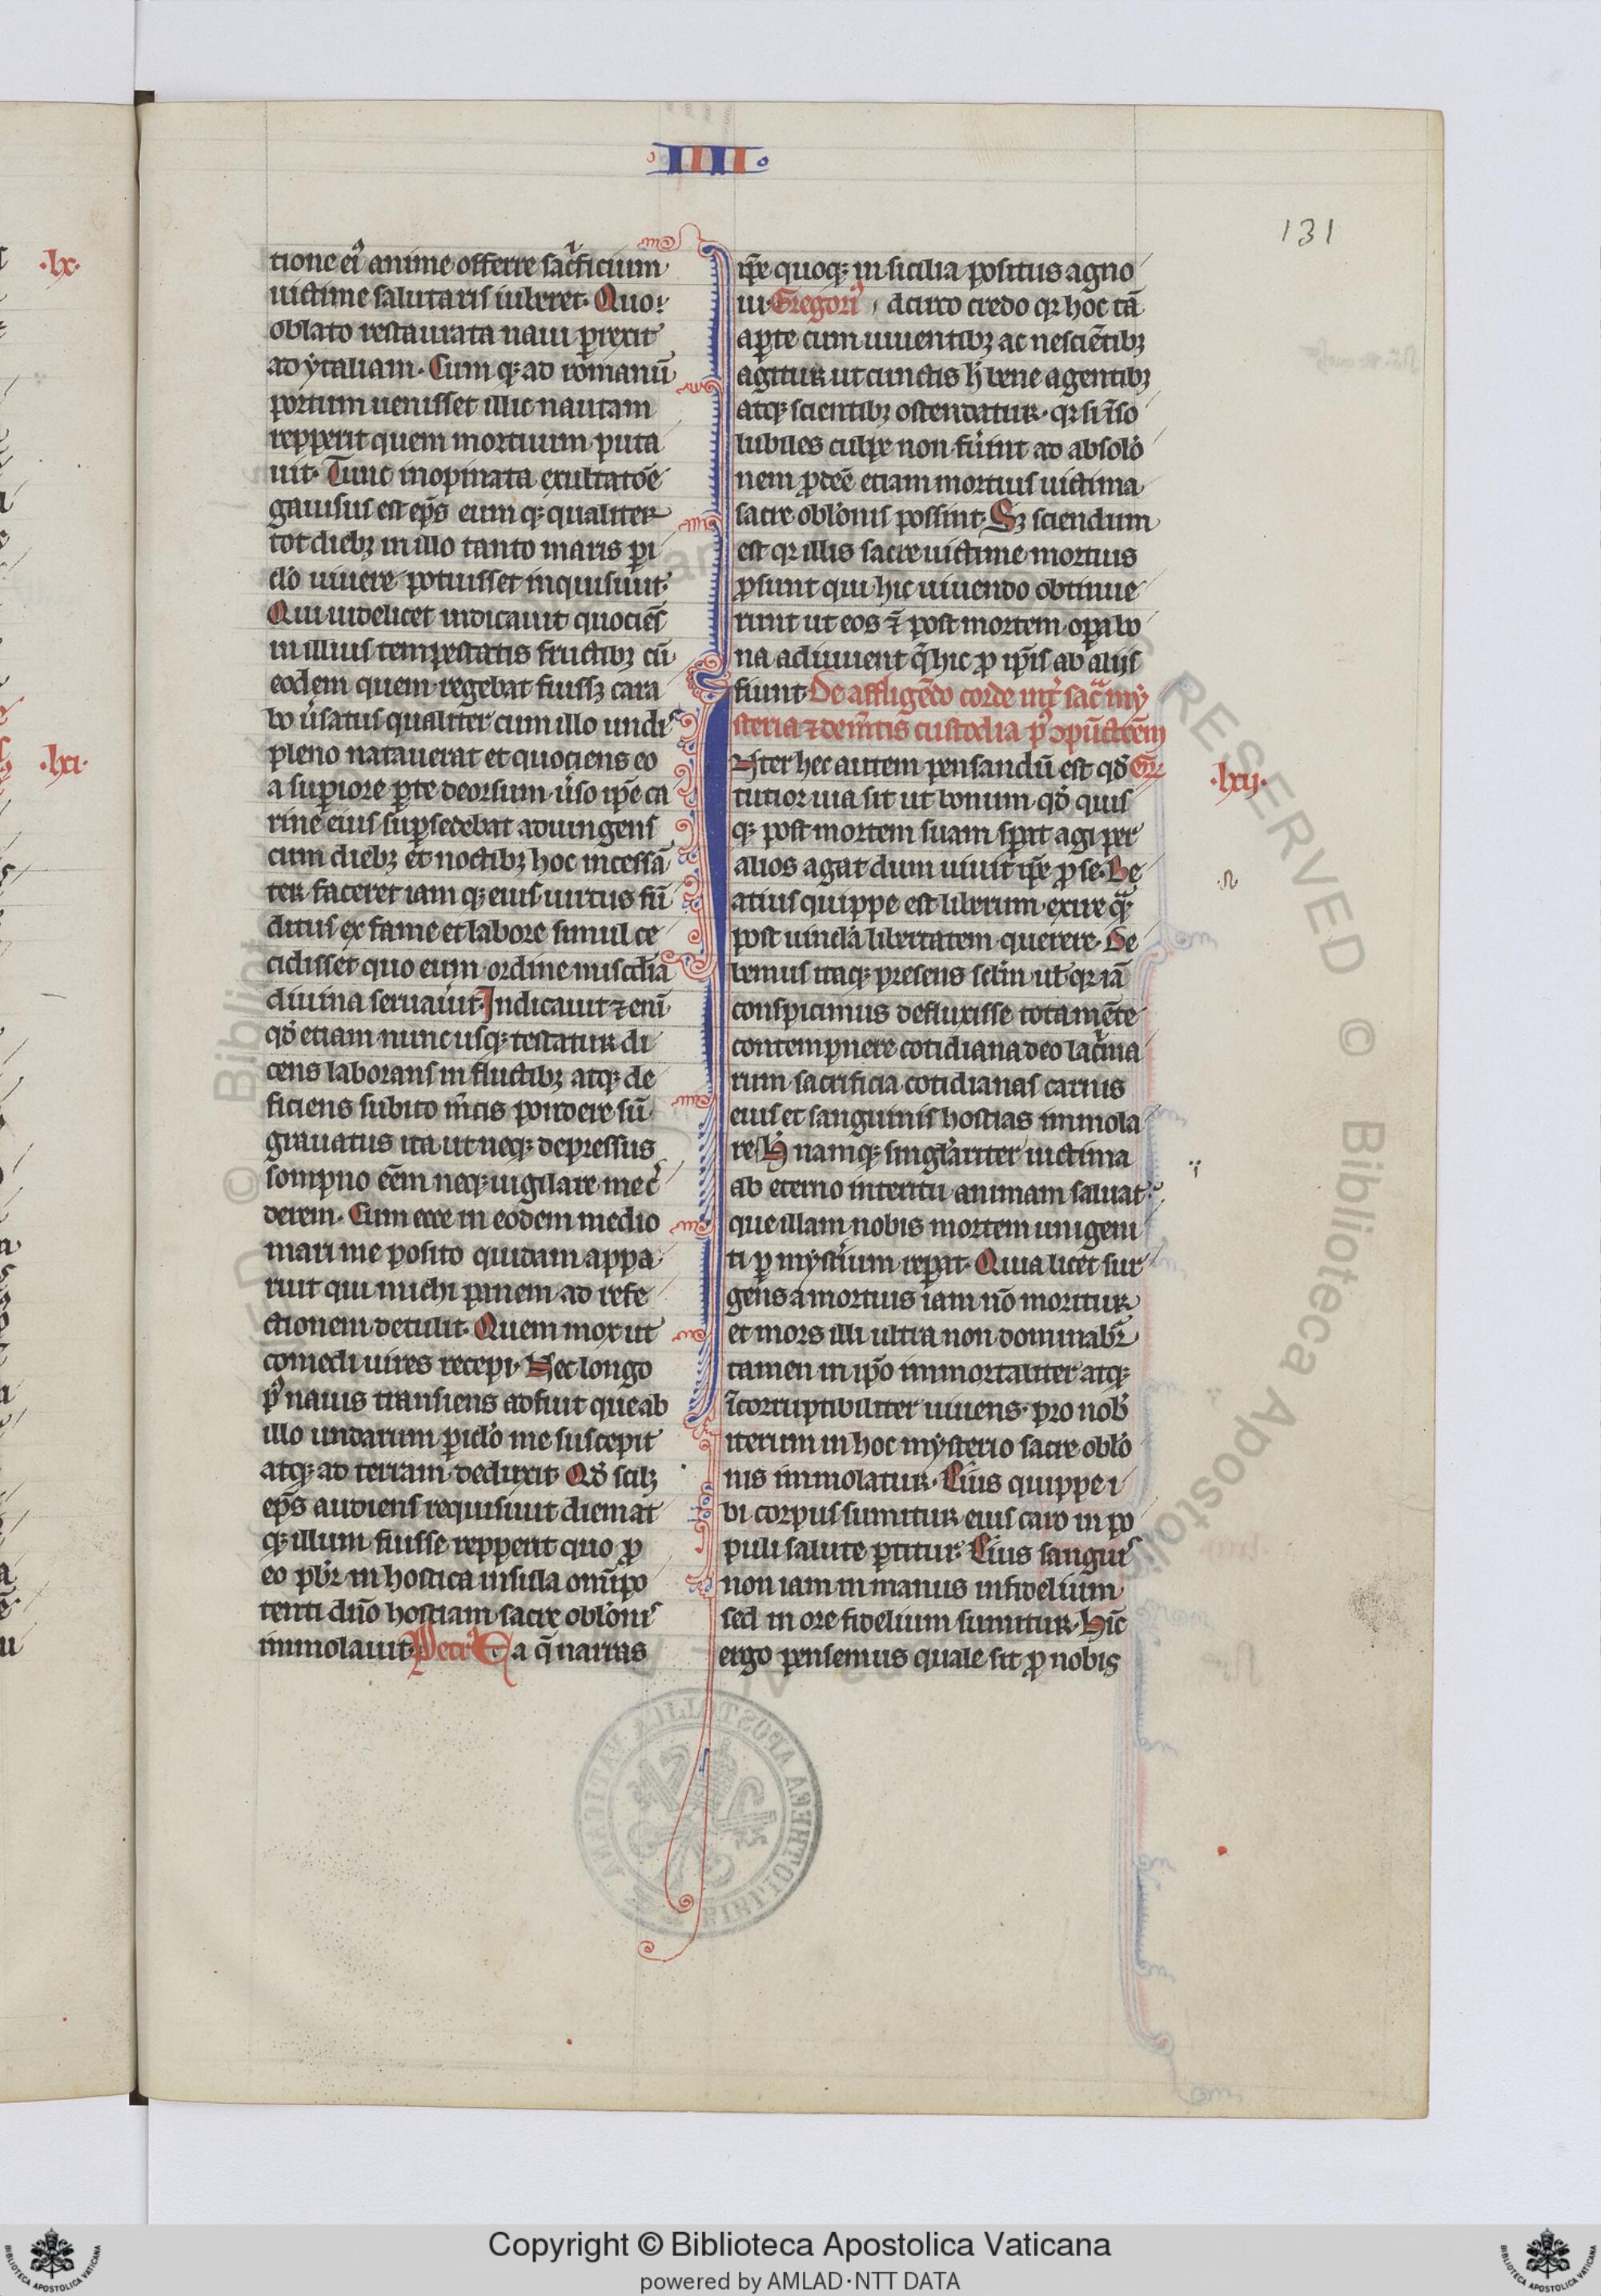 IIII
131
tione ei᷒ anime offerre sac̾ficium
uictime salutaris iuberet. Quo
oblato restaurata naui ꝑrexit
ad ytaliam. Cum qꝫ ad romanū
portum uenisset illic nautam
repperit quem mortuum puta
uit. Tunc inopinata exultatōē
gauisus est ep̄s eum qꝫ qualiter
tot diebꝫ in illo tanto maris ꝑi
cĺo uiuere potuisset inquisiuit.
Qui uidelicet indicauit quociēs
in illius tempestatis fluctibꝫ cū
eodem quem regebat fuissꝫ cara
bo u̾satus qualiter cum illo undis
pleno natauerat et quociens eo
a suꝑiore ꝑte deorsum u̾so ip̄e ca
rine eius suꝑsedebat adiungens
cum diebꝫ et noctibꝫ hoc incessā
ter faceret iam qꝫ eius uirtus fū
ditus ex fame et labore simul ce
cidisset quo eum ordine mīa
diuina seruauit. Indicauit ⁊ eni᷒
qđ etiam nunc usqꝫ testatur di
cens laborans in fluctibꝫ atqꝫ de
ficiens subito m̄tis pondere sū
grauatus ita ut neqꝫ depressus
sompno eēm neqꝫ uigilare me c̾
derem. Cum ecce in eodem medio
mari me posito quidam appa
ruit qui michi panem ad refe
ctionem detulit. Quem mox ut
comedi uires recepi. Nec longo
p᷒ nauis transiens adfuit que ab
illo undarum ꝑicĺo me suscepit
atqꝫ ad terram deduxit. Qđ scilꝫ
ep̄s audiens requisiuit diem at
qꝫ illum fuisse repperit quo ꝓ
eo pb̄r in hostica insula om̄ipo
tenti dn̄o hostiam sacre obĺonis
immolauit. Petr᷒ Ea q̄ narras
ip̄e quoqꝫ in sicilia positus agno
ui. Gregori᷒ dcirco credo qꝛ hoc tā
aꝑte cum uiuentibꝫ ac nesciētibꝫ
agitur ut cunctis h̾ bene agentibꝫ
atqꝫ scientibꝫ ostendatur. qꝛ si īso
lubiles culpe non fu̾int ad absoĺo
nem ꝓdēē etiam mortuis uictima
sacre obĺonis possint. Sꝫ sciendum
est qꝛ illis sacre uictime mortuis
ꝓsunt qui hic uiuendo obtinue
runt ut eos ⁊̄ post mortem oꝑa bo
na adiuuent q̄ hic ꝓ ip̄is ab aliis
fiunt. De affligēdo corde int̾ sac̄ my
steria ⁊ de m̄tis custodia p᷒ ↄpūctōēm
Nter hec autem pensandū est qđ Gr̄
tutior uia sit ut bonum qđ quis
qꝫ post mortem suam sꝑat agi per
alios agat dum uiuit ip̄e ꝓ se. Be
atius quippe est liberum exire q̄
post uincĺa libertatem querere. De
bemus itaqꝫ presens secĺm ut̾ qꝛ iā
conspicimus defluxisse tota mēte
contempnere cotidiana deo lac̾ima
rum sacrificia cotidianas carnis
eius et sanguinis hostias immola
re. H̾ namqꝫ singĺariter uictima
ab eterno interitu animam saluat
que illam nobis mortem unigeni
ti ꝑ myst̾ium reꝑat. Quia licet sur
gens a mortuis iam nō moritur
et mors illi ultra non dominabr̄
tamen in ip̄o immortaliter atqꝫ
īcorruptibiliter uiuens. pro nob̾
iterum in hoc mysterio sacre obĺo
nis immolatur. Eius quippe i
bi corpus sumitur eius caro in po
puli salute ꝑtitur. Eius sanguis
non iam in manus infidelium
sed in ore fidelium sumitur. Hīc
ergo pensemus quale sit ꝓ nobis
.lx.
.lxi.
.lxij.
Copyright © Biblioteca Apostolica Vaticana
powered by AMLAD·NTT DATA